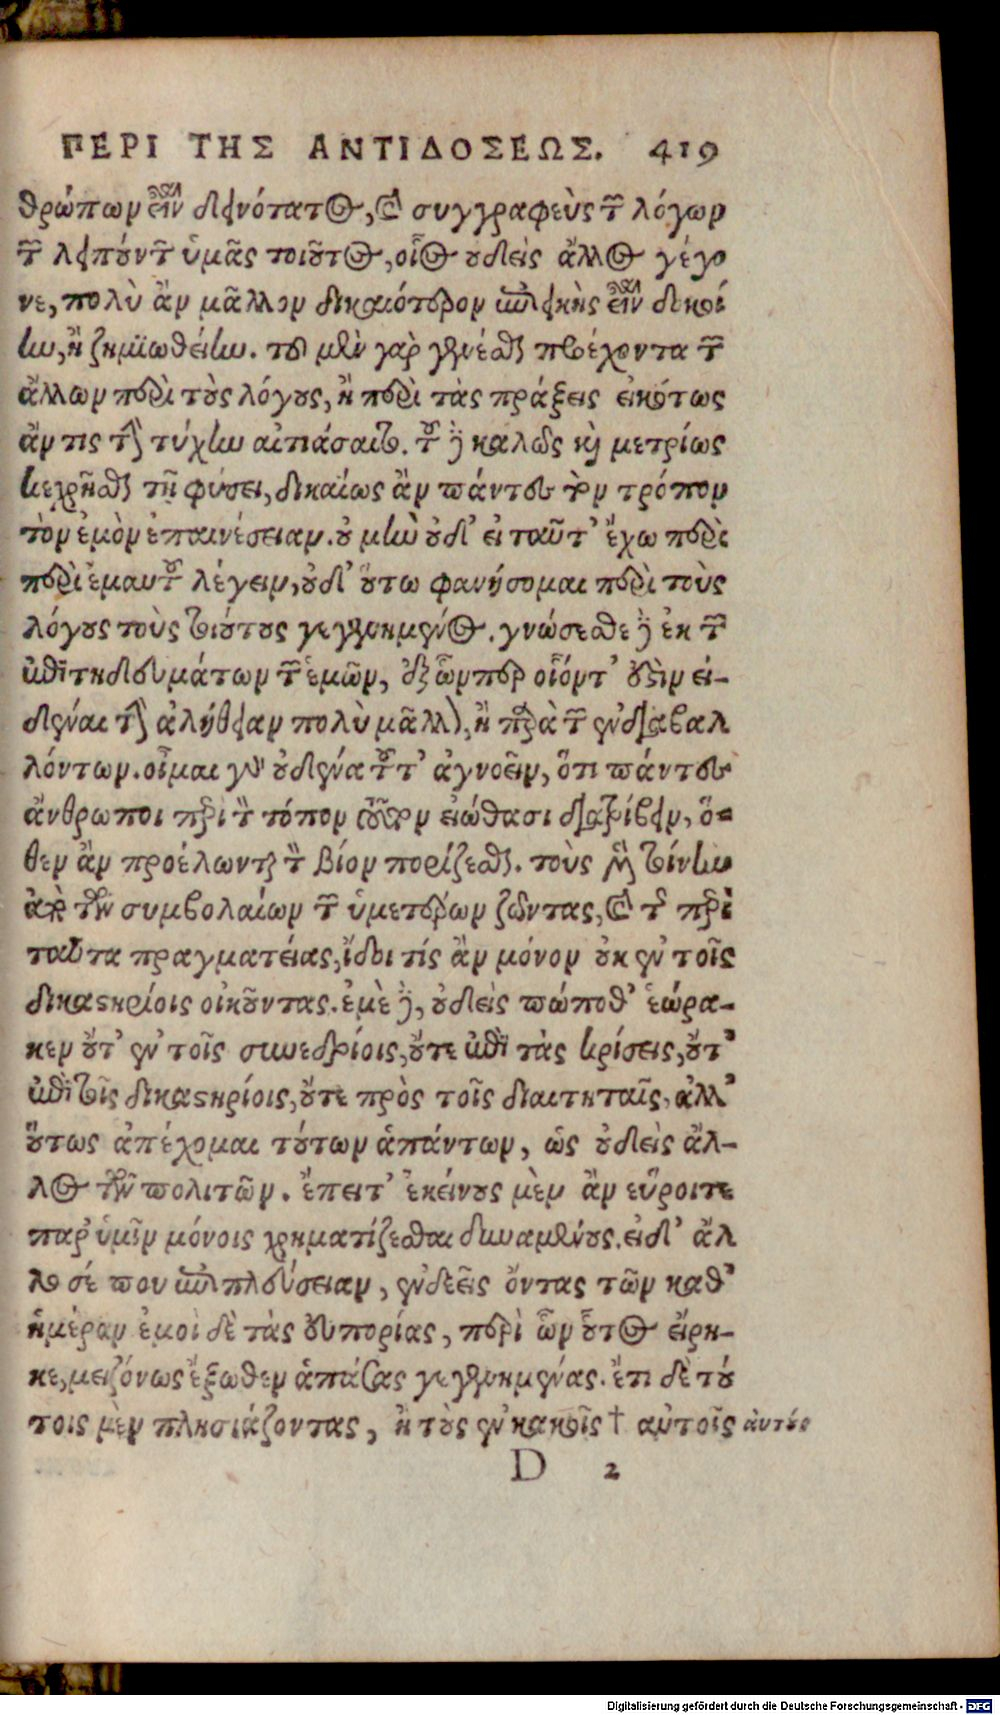 ΠΕΡΙ ΤΗΣ ΑΝΤΙΔΟΣΕΩΣ. 419
θρώπων εἶναι δεινότατος, καὶ συγγραφεὺς τῶν λόγων
τῶν λυπούντων ὑμᾶς τοιοῦτος, οἷος οὐδεὶς ἄλλος γέγο
νε, πολὺ ἂν μᾶλλον δικαιότερον ἐπιεικὴς εἶναι δοκοί
ην, ἢ ζημιωθείην. τοῦ μὲν γὰρ γενέσθαι προέχοντα τῶν
ἄλλων περὶ τοὺς λόγους, ἢ περὶ τὰς πράξεις εἰκότως
ἄν τις τὴν τύχην αἰτιάσαιτο. τοῦ δὲ καλῶς καὶ μετρίως
κεχρῆσθαι τῇ φύσει, δικαίως ἂν πάντες τὸν τρόπον
τὸν ἐμὸν ἐπαινέσειαν. οὐ μὴν οὐδ' εἰ ταῦτ' ἔχω περὶ
περὶ ἐμαυτοῦ λέγειν, οὐδ' οὕτω φανήσομαι περὶ τοὺς
λόγους τοὺς τοιούτους γεγενημένος. γνώσεσθε δὲ ἐκ τῶν
ἐπιτηδευμάτων τῶν ἐμῶν, ἐξ ὧνπερ οἷόντ' ἐστὶν εἰ-
δέναι τὴν ἀλήθειαν πολὺ μᾶλλον, ἢ παρὰ τῶν ἐνδιαβαλ
λόντων. οἶμαι γὰρ οὐδένα τοῦτ' ἀγνοεῖν, ὅτι πάντες
ἄνθρωποι περὶ τὸν τόπον τοῦτον εἰώθασι διατρίβειν, ὅ-
θεν ἂν προέλωνται τὸν βίον πορίζεσθαι. τοὺς μὲν τοίνυν
ἀπὸ τῶν συμβολαίων τῶν ὑμετέρων ζῶντας, καὶ τῆς περὶ
ταῦτα πραγματείας, ἴδοι τίς ἂν μόνον οὐκ ἐν τοῖς
δικαστηρίοις οἰκοῦντας. ἐμὲ δὲ, οὐδεὶς πώποθ' ἑώρα-
κεν οὔτ' ἐν τοῖς συνεδρίοις, οὔτε ἐπὶ τὰς κρίσεις, οὔτ'
ἐπὶ τοῖς δικαστηρίοις, οὔτε πρὸς τοῖς διαιτηταῖς, ἀλλ'
οὕτως ἀπέχομαι τούτων ἁπάντων, ὡς οὐδεὶς ἄλ-
λος τῶν πολιτῶν. ἔπειτ' ἐκείνους μὲν ἂν εὕροιτε
παρ' ὑμῖν μόνοις χρηματίζεσθαι δυναμένους. εἰ δ' ἄλ
λο σέ που ἐπιπλεύσειαν, ἐνδεεῖς ὄντας τῶν καθ'
ἡμέραν ἐμοὶ δὲ τὰς εὐπορίας, περὶ ὧν οὗτος εἴρη-
κε, μειζόνως ἔξωθεν ἁπάσας γεγενημένας. ἔτι δὲ τού
τοις μὲν πλησιάζοντας, ἢ τοὺς ἐν κακοῖς † αὐτοῖς
D 2
Digitalisierung gefördert durch die Deutsche Forschungsgemeinschaft - DFG